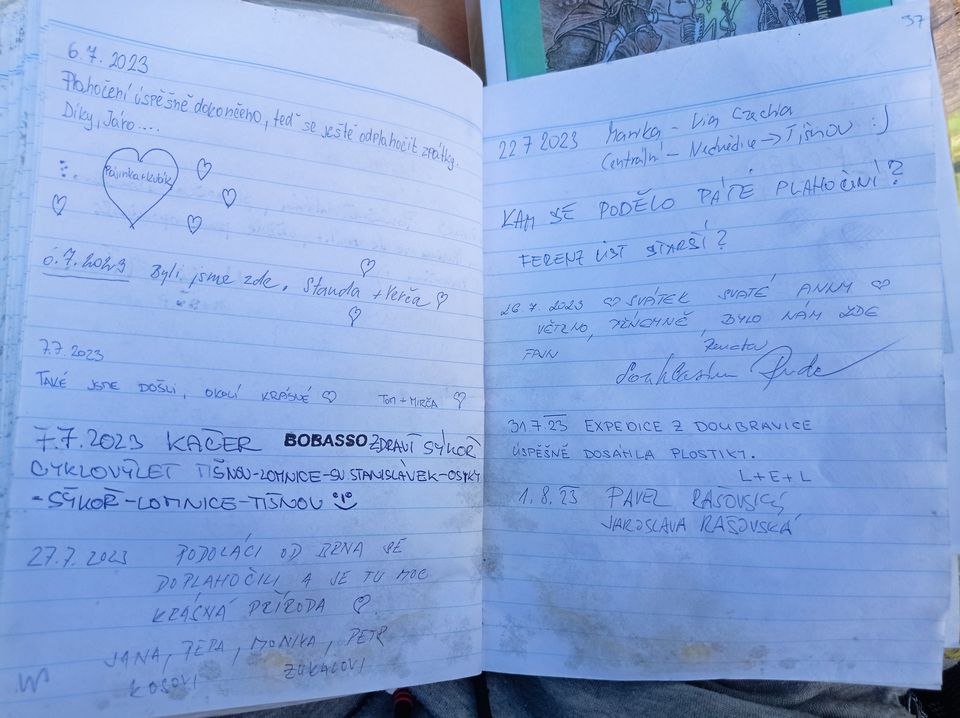 6.7.2023
Plahočení úspěšně dokončeno, teď se ještě odplahočit zpátky.
Díky, Járo....
Pájinka+Kubík
6.7.2023 Byli jsme zde, Standa + Verča
7.7.2023
TAKÉ JSME DOŠLI, OKOLÍ KRÁSNÉ ♡ TOM + MIRČA ♡
7.7.2023 KAČER BOBASSO ZDRAVÍ SÝKOŘ
CYKLOVÝLET TIŠNOV-LOMNICE-SV STANISLÁVEK-OSIKY
-SÝKOŘ-LOMNICE-TIŠNOV
27.7.2023 PODOLÁCI OD BRNA SE
DOPLAHOČILI A JE TU MOC
KRÁSNÁ PŘÍRODA ♡.
JANA, PÉŤA, MONIKA, PETR
KOSOVI ZUKALOVI
37
22.7 2023 Marika - Via Czechia
Centrální - Nedvědice → TIŠNOV :)
KAM SE PODĚLO PÁTÉ PLAHOČENÍ?
FERENZ LIST STARŠÍ?
26.7.2023 ♡ SVÁTEK SVATÉ ANNY ♡
VĚTRNO, PŘÍJEMNĚ, BYLO NÁM ZDE
FAJN Renata
Souhlasím
31.7.23 EXPEDICE Z DOUBRAVICE
ÚSPĚŠNĚ DOSÁHLA PLOSTIKY.
L+E+L
1.8.23 PAVEL RAŠOVSKÝ
JAROSLAVA RAŠOVSKÁ